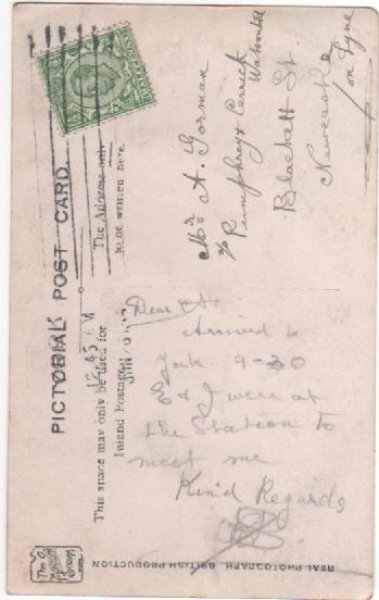 PICTORIAL POST CARD.
This space may only be used for
Inland Postage.
The Address only
to be written here.
Mr A. Gorman
c/o Pumphrey & Carrick
Watson Ltd
Blackett St.
Newcastle
on Tyne
Dear
Arrived
York 9-30
E & J were at
the Station to
meet me
Kind Regards
REAL PHOTOGRAPH. BRITISH PRODUCTION